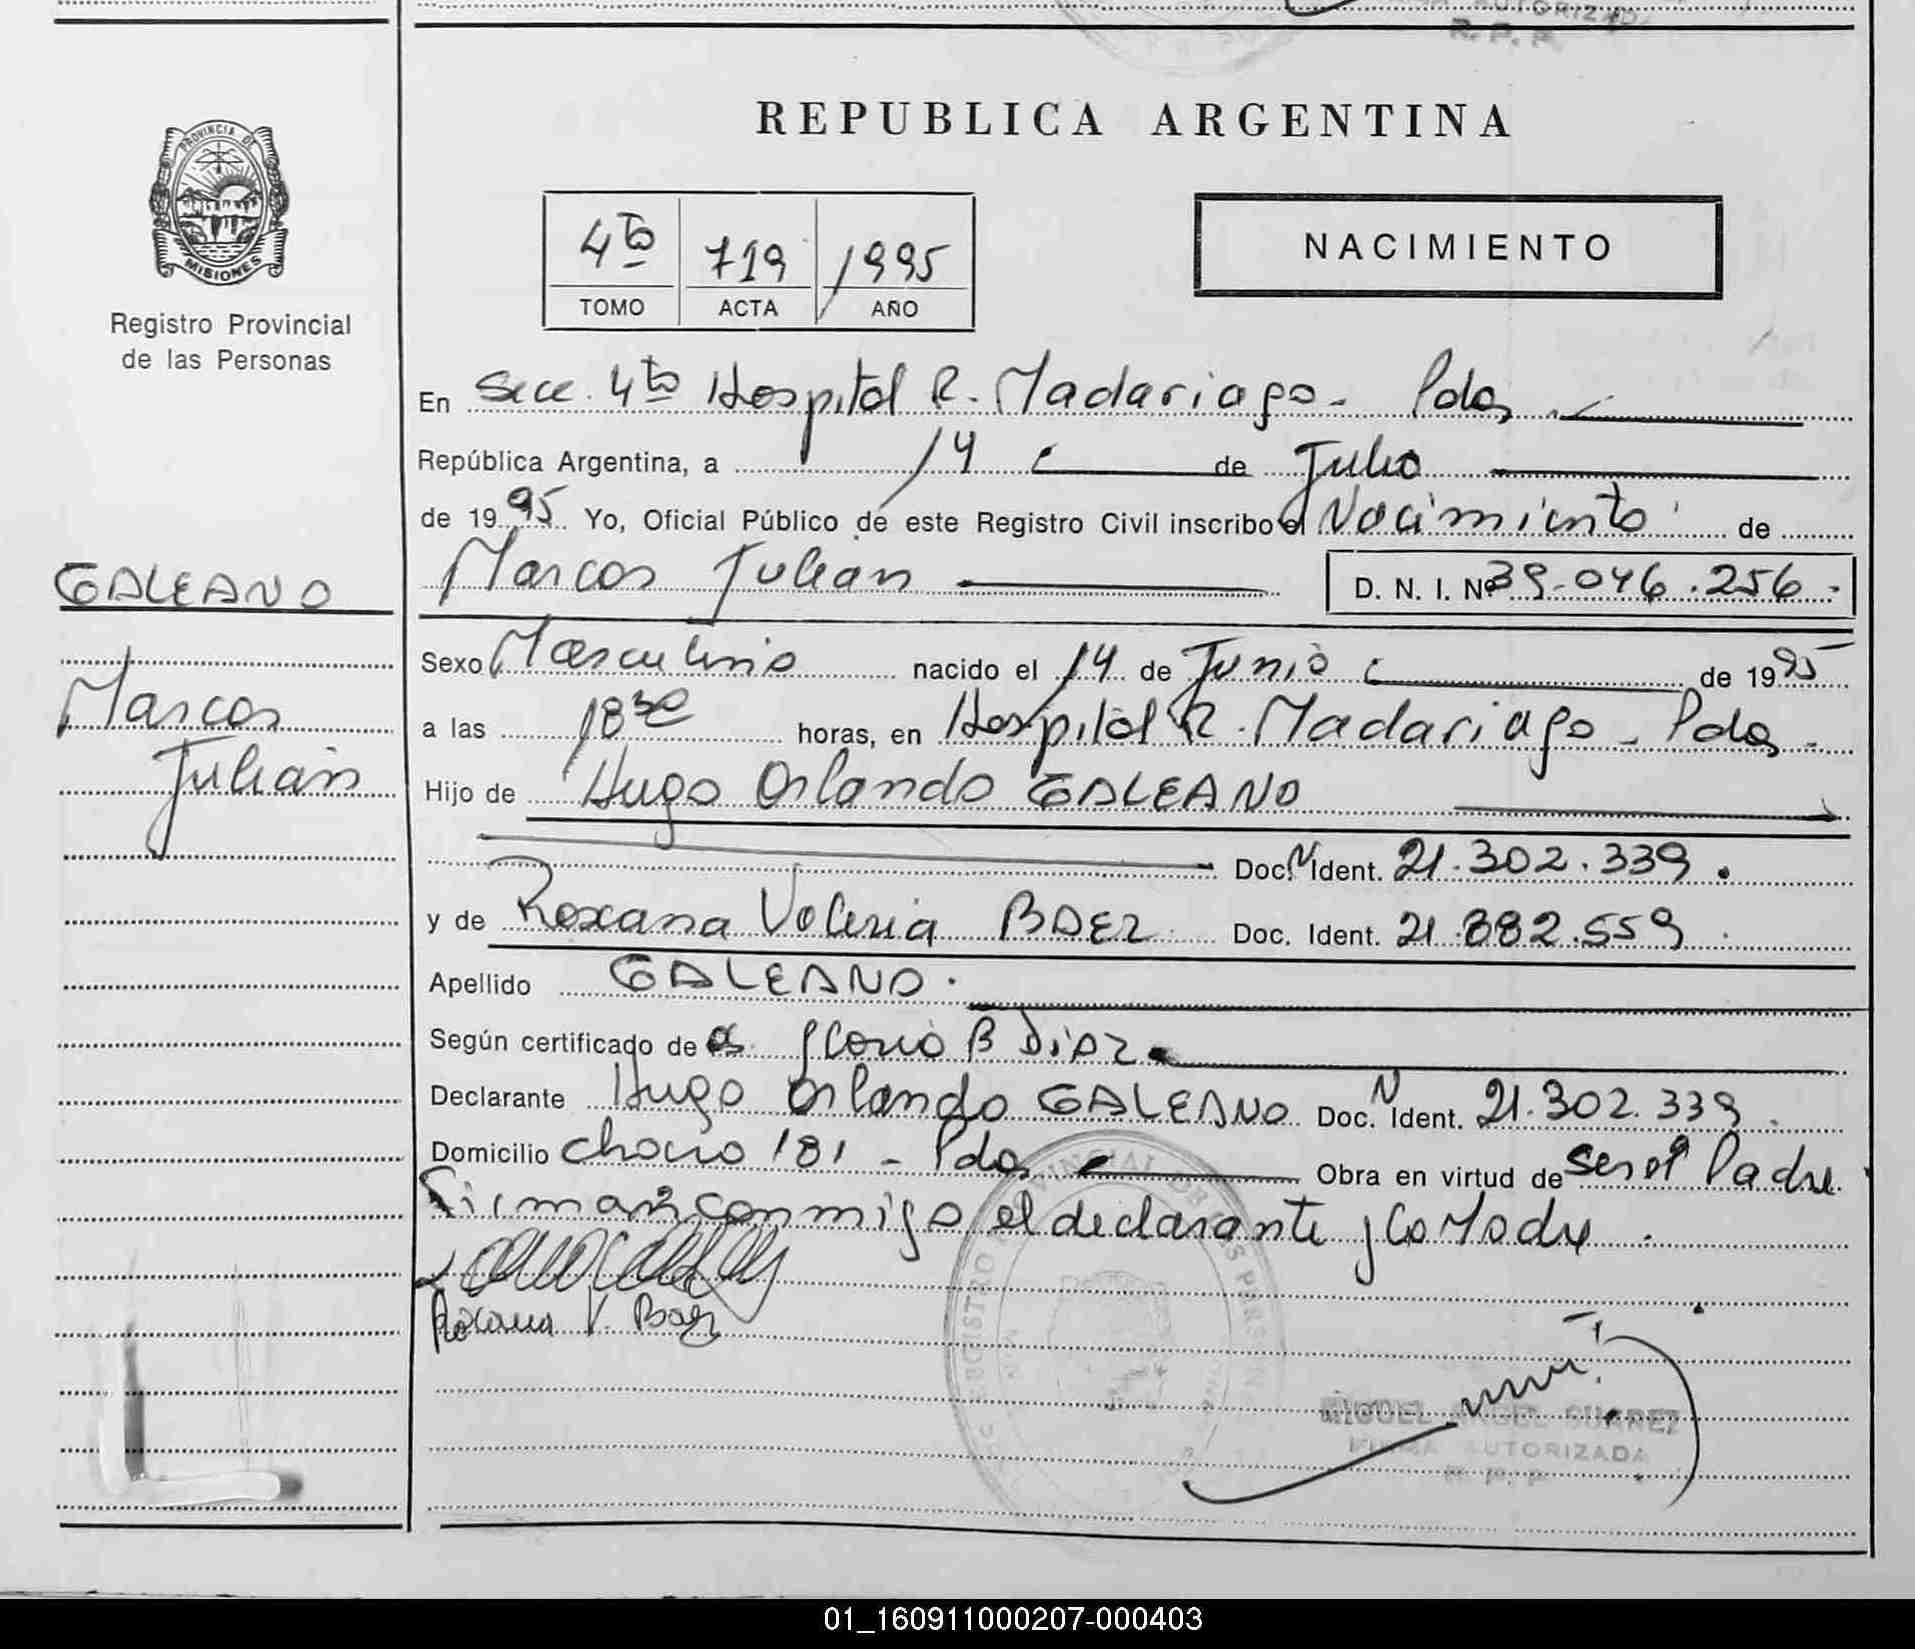 AUTORIZADA
R. P. P.
REPUBLICA ARGENTINA
PROVINCIA DE
MISIONES
Registro Provincial
de las Personas
4to 719 1995
TOMO ACTA AÑO
NACIMIENTO
En Secc. 4to Hospital R. Madariaga - Pdas
República Argentina, a 14 de Julio
de 1995 Yo, Oficial Público de este Registro Civil inscribo el Nacimiento de
GALEANO
Marcos Julian D. N. I. Nº 39.046.256.
Marcos
Julian
Sexo Masculino nacido el 14 de Junio de 1995
a las 18 30 horas, en Hospital R. Madariaga - Pdas.
Hijo de Hugo Orlando GALEANO
Doc. N Ident. 21.302.339.
y de Roxana Valeria BAEZ Doc. Ident. 21.882.559.
Apellido GALEANO.
Según certificado de Gloria B Diaz
Declarante Hugo Orlando GALEANO Doc. N Ident. 21.302.339.
Domicilio Chaco 181 - Pdas Obra en virtud de ser el Padre.
Firman conmigo el declarante y la Madre.
Roxana V. Baez
MIGUEL ANGEL SUAREZ
FIRMA AUTORIZADA
R. P. P.
01_160911000207-000403